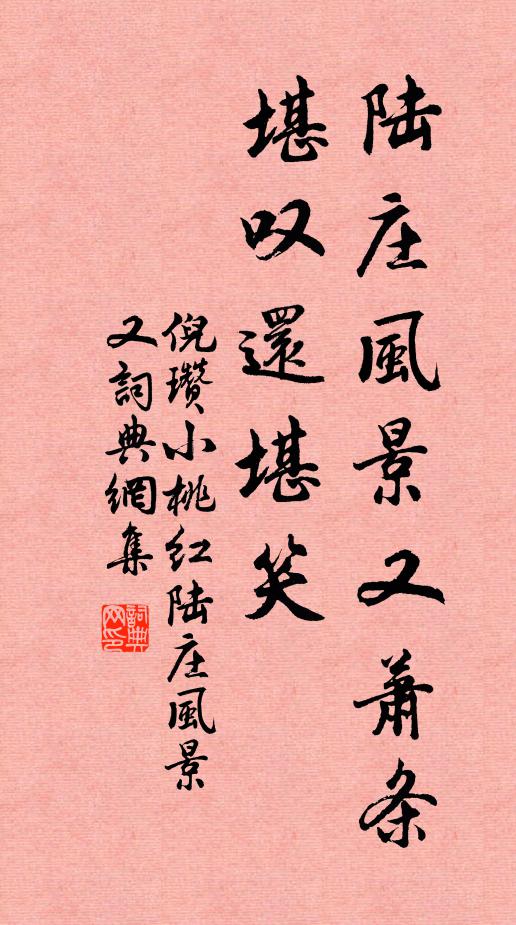 陆庄風景又蕭条
堪叹還堪笑
倪瓚小桃红陆庄風景
又詞典網集
詞典网印